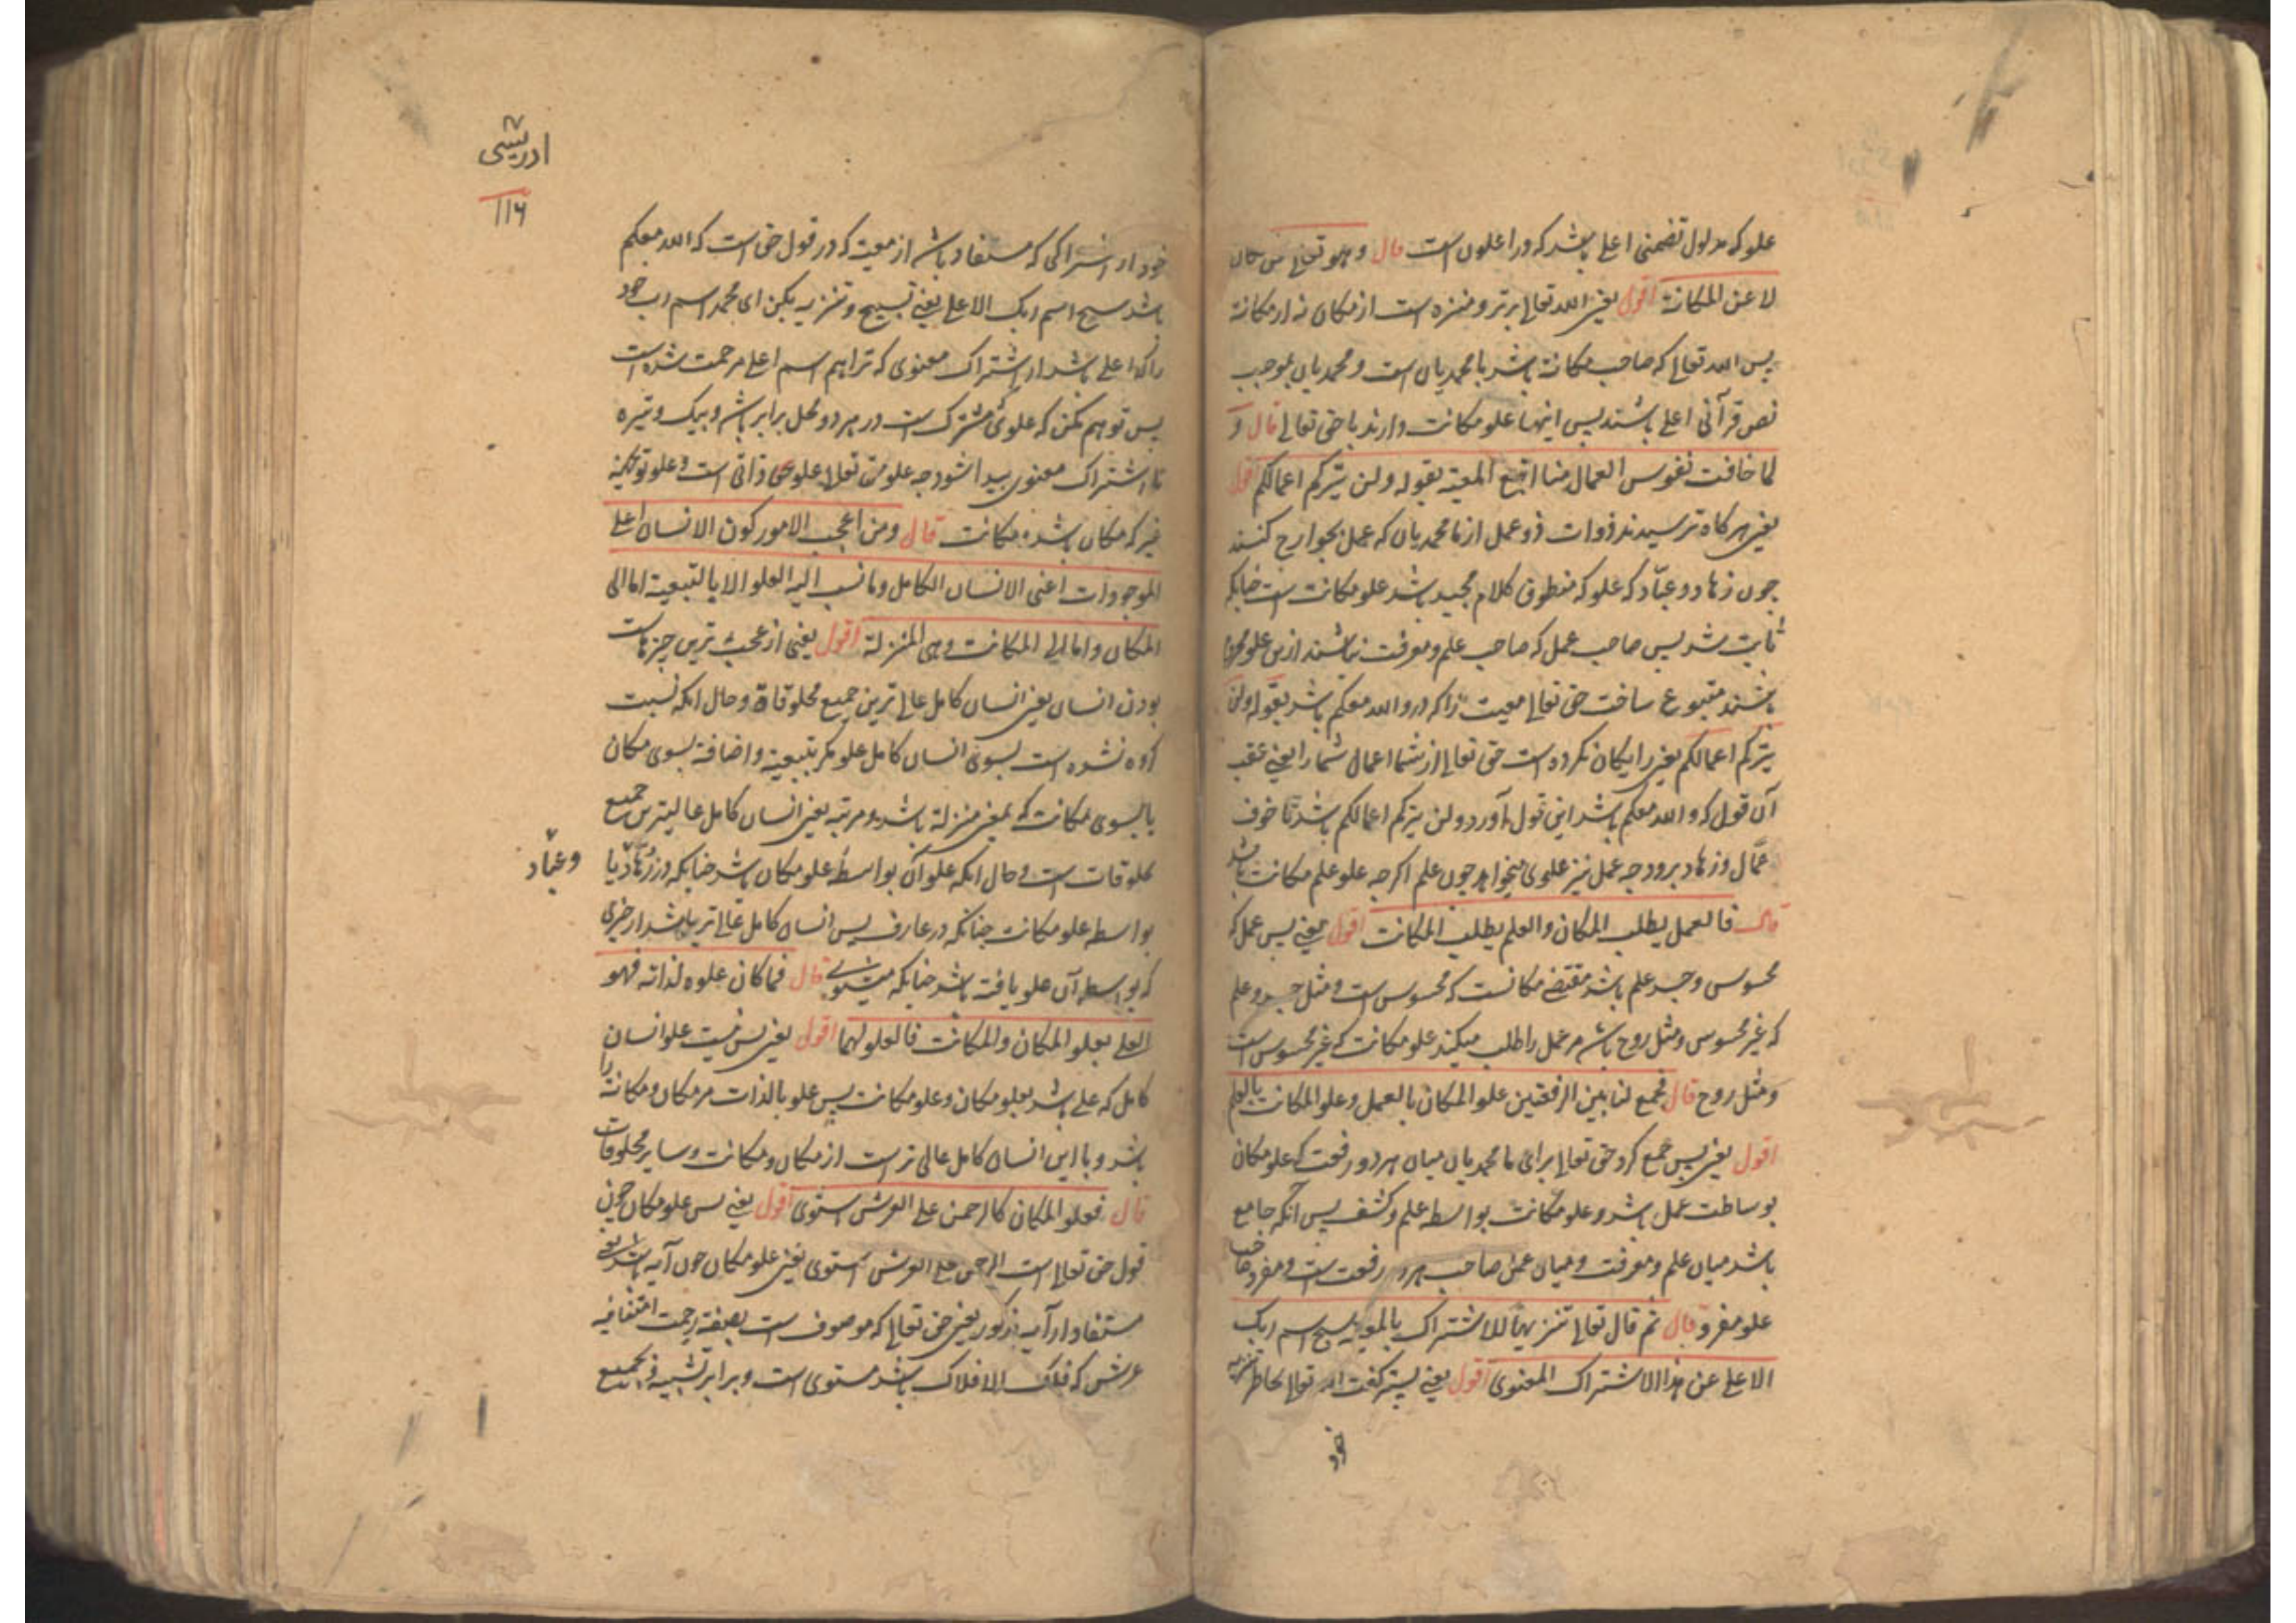 علو که مدلول تضمنی اعلی باشد که در اعلون است قال وهو تعالی عن المکان
لا عن المکانة اقول یعنی الله تعالی برتر و منزه است از مکان نه از مکانة
پس الله تعالی که صاحب مکانة باشد با محمدیان است و محمدیان بموجب
نص قرآنی اعلی باشند پس اینها علو مکانت دارند با حق تعالی قال و
لما خافت نفوس العمال منا اتبع المعیة بقوله ولن یترکم اعمالکم اقول
یعنی هر کاه ترسیدند ذوات ذو عمل از ما محمدیان که عمل بجوارح کنند
چون زهاد و عبّاد که علو که منطوق کلام مجید باشد علو مکانت است چنانکه
ثابت شد پس صاحب عمل که صاحب علم و معرفت نباشند ازین علو محروم
باشند متبوع ساخت حق تعالی معیت را که در والله معکم باشد بقوله ولن
یترکم اعمالکم یعنی رایکان نکرده است حق تعالی از شما اعمال شما را یعنی عقب
آن قول که والله معکم باشد این قول آورد ولن یترکم اعمالکم باشد تا خوف
عمّال و زهاد برود چه عمل نیز علوی میخواهد چون علم اکرچه علو علم مکانت باشد
قال فالعمل یطلب المکان والعلم یطلب المکانت اقول یعنی پس عمل که
محسوس و جسد علم باشد مقتضی مکانست که محسوس است و مثل جسد و علم
که غیر محسوس و مثل روح باشد مر عمل را طلب میکند علو مکانت که غیر محسوس است
و مثل روح قال فجمع لنا بین الرفعتین علو المکان بالعمل وعلو المکانت بالعلم
اقول یعنی پس جمع کرد حق تعالی برای ما محمدیان میان هر دو رفعت که علو مکان
بوساطت عمل باشد و علو مکانت بواسطه علم و کشف پس آنکه جامع
باشد میان علم و معرفت و میان عمل صاحب هر دو رفعت است و مفرد صاحب
علو مفرد قال ثم قال تعالی تنزیها للاشتراک بالمعیة سبح اسم ربک
الاعلی عن هذا الاشتراک المعنوی اقول یعنی پستر کفت الله تعالی بخاطر تنزیه
خود
ادریسی
۱۱۶
خود از اشتراکی که مستفاد باشد از معیة که در قول حق است که الله معکم
باشد سبح اسم ربک الاعلی یعنی تسبیح و تنزیه بکن ای محمد اسم رب خود
را که اعلی باشد از اشتراک معنوی که ترا هم اسم اعلی مرحمت شده است
پس توهم مکن که علوی مشترک است در هر دو محل برابر باشد و بیک وتیره
تا اشتراک معنوی پیدا شود چه علو حق تعالی علو ذاتی است و علو تو
غیر که مکان باشد و مکانت قال ومن اعجب الامور کون الانسان اعلی
الموجودات اعنی الانسان الکامل وما نسب الیه العلو الا بالتبعیة اما الی
المکان واما الی المکانت وهی المنزلة اقول یعنی از عجب ترین چیزهاست
بودن انسان یعنی انسان کامل عالی ترین جمیع مخلوقاة و حال انکه نسبت
کرده نشده است بسوی انسان کامل علو مکر بتبعیة و اضافة بسوی مکان
یا بسوی مکانت که بمعنی منزلة باشد و مرتبه یعنی انسان کامل عالیترین جمیع
مخلوقات است و حال انکه علو آن بواسطه علو مکان باشد چنانکه در زهّاد یا
و عبّاد
بواسطه علو مکانت چنانکه در عارف پس انسان کامل عالی تر باشد از چیزی
که بواسطه آن علو یافته باشد چنانکه میشنوی قال فما کان علوه لذاته فهو
العلی بعلو المکان والمکانت فالعلو لهما اقول یعنی پس نیست علو انسان
کامل که علی باشد بعلو مکان و علو مکانت پس علو بالذات مر مکان و مکانة را
باشد و با این انسان کامل عالی تر است از مکان و مکانت و سایر مخلوقات
قال فعلو المکان کالرحمن علی العرش استوی اقول یعنی پس علو مکان چون
قول حق تعالی است الرحمن علی العرش استوی یعنی علو مکان چون آیه باشد یعنی
مستفاد از آیه مذکور یعنی حق تعالی که موصوف است بصفة رحمت امتنانیه
عرش که فلک الافلاک باشد مستوی است و برابر نسبت بجمیع